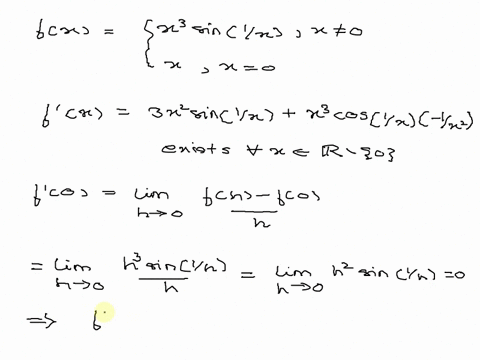 f(x) = { x³ sin(1/x), x ≠ 0
x, x = 0
f'(x) = 3x² sin(1/x) + x³ cos(1/x) (-1/x²)
exists ∀ x ∈ ℝ \ {0}
f'(0) = lim h→0 f(h) - f(0) / h
= lim h→0 h³ sin(1/h) / h = lim h→0 h² sin(1/h) = 0
⇒ f'